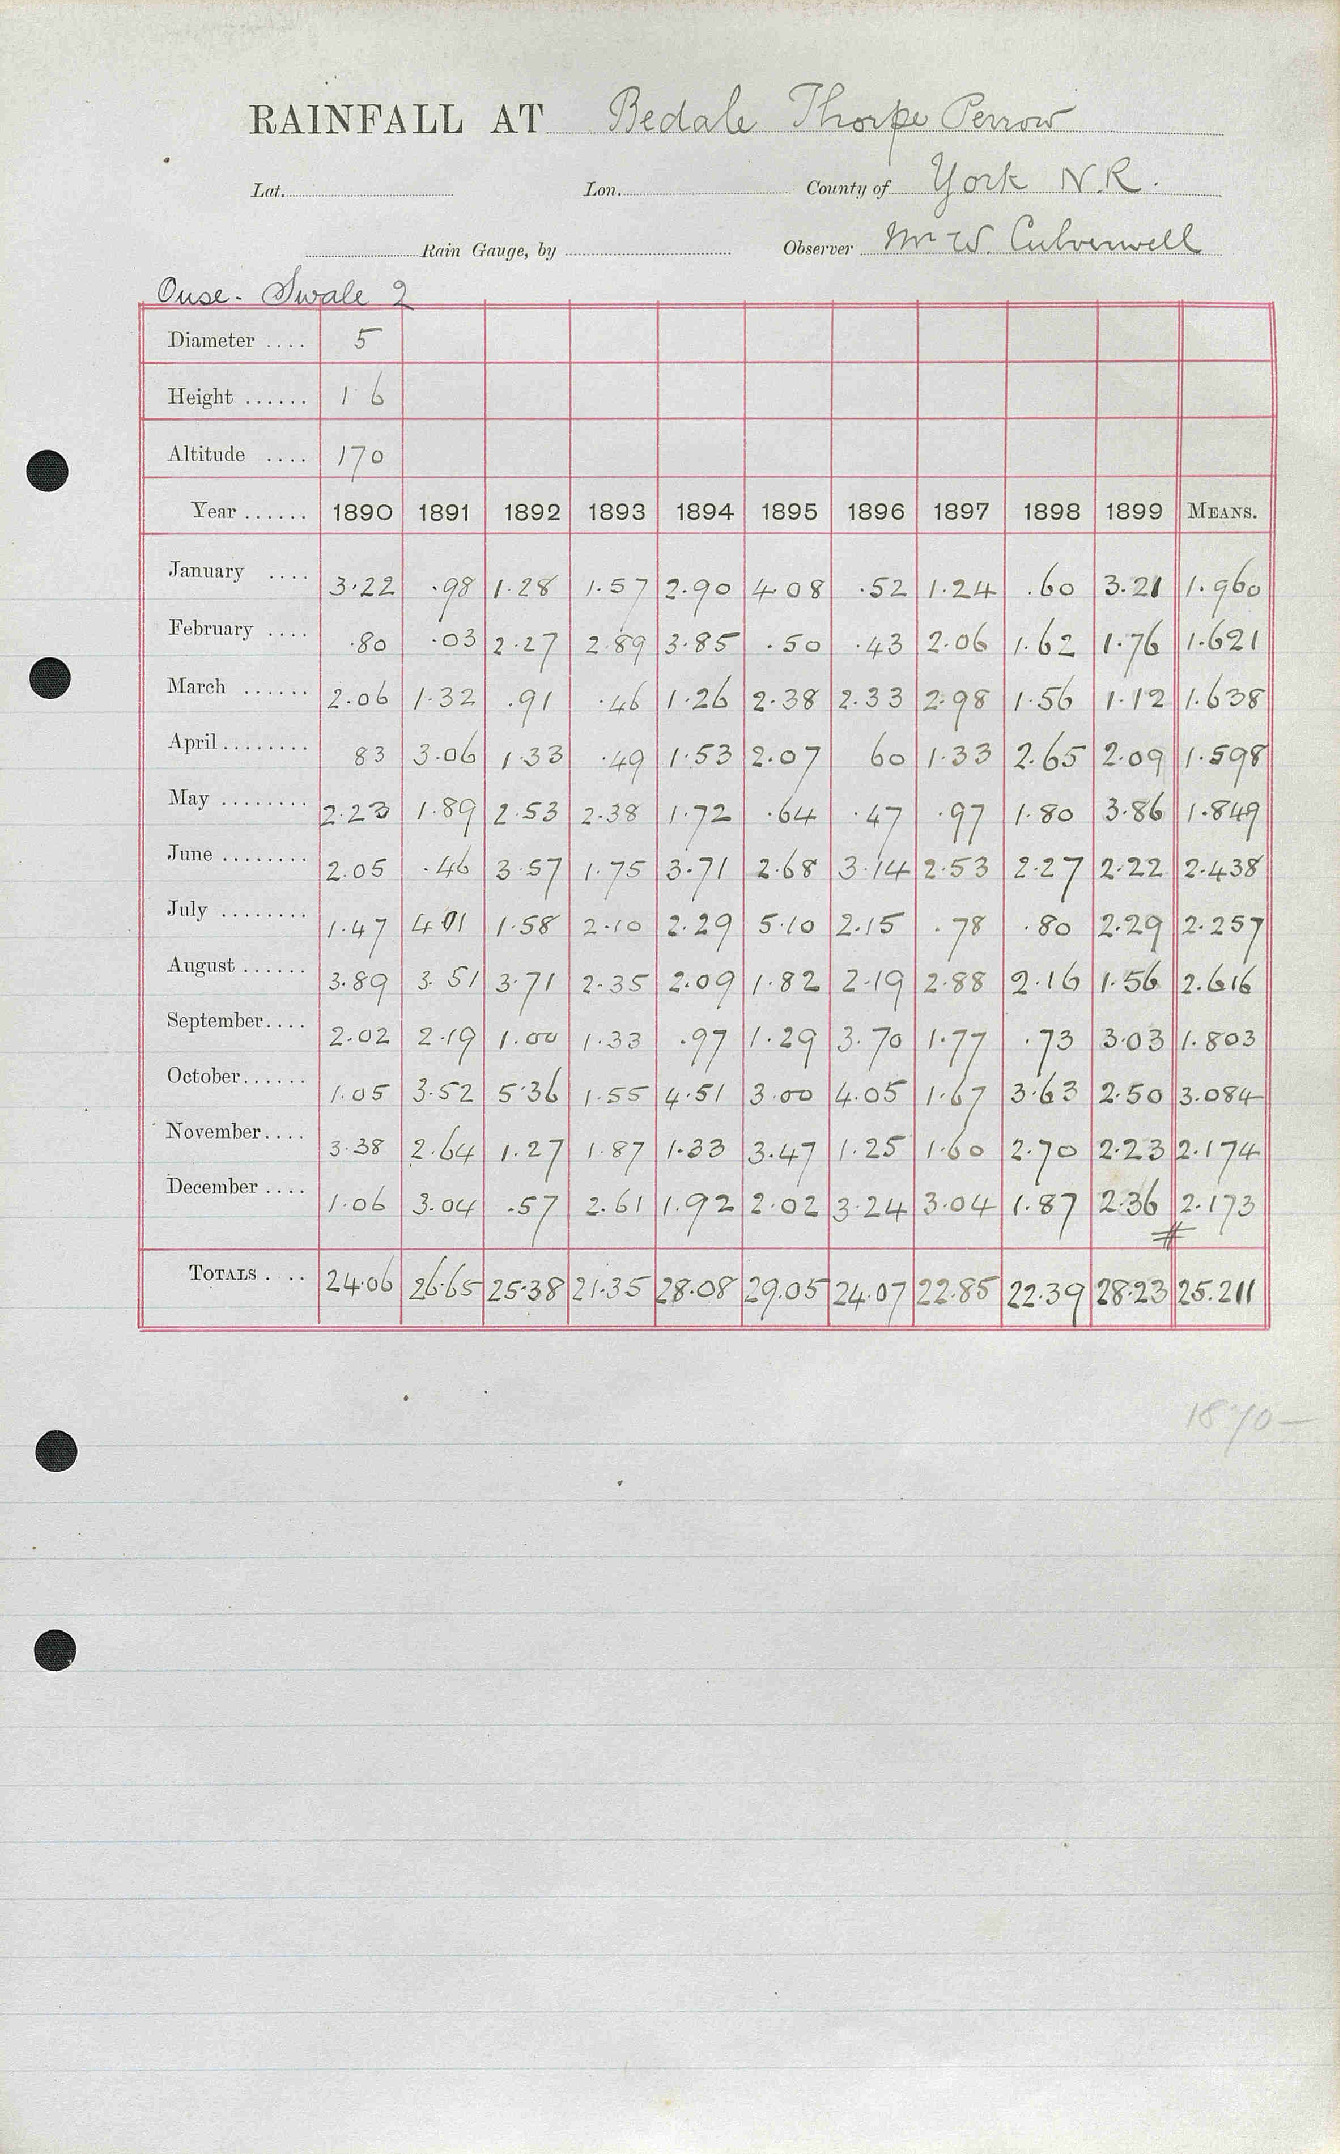 RAINFALL AT Bedale Thorpe Perrow
Lat. Lon. County of York N.R.
Rain Gauge, by Observer Mr W. Culverwell
Ouse - Swale 2
Diameter .... 5
Height ...... 1 6
Altitude .... 170
Year ...... 1890 1891 1892 1893 1894 1895 1896 1897 1898 1899 MEANS.
January .... 3.22 .98 1.28 1.57 2.90 4.08 .52 1.24 .60 3.21 1.960
February .... .80 .03 2.27 2.89 3.85 .50 .43 2.06 1.62 1.76 1.621
March ...... 2.06 1.32 .91 .46 1.26 2.38 2.33 2.98 1.56 1.12 1.638
April ........ 83 3.06 1.33 .49 1.53 2.07 60 1.33 2.65 2.09 1.598
May ........ 2.23 1.89 2.53 2.38 1.72 .64 .47 .97 1.80 3.86 1.849
June ........ 2.05 .46 3.57 1.75 3.71 2.68 3.14 2.53 2.27 2.22 2.438
July ........ 1.47 4.01 1.58 2.10 2.29 5.10 2.15 .78 .80 2.29 2.257
August ...... 3.89 3.51 3.71 2.35 2.09 1.82 2.19 2.88 2.16 1.56 2.616
September .... 2.02 2.19 1.00 1.33 .97 1.29 3.70 1.77 .73 3.03 1.803
October ...... 1.05 3.52 5.36 1.55 4.51 3.00 4.05 1.67 3.63 2.50 3.084
November .... 3.38 2.64 1.27 1.87 1.33 3.47 1.25 1.60 2.70 2.23 2.174
December .... 1.06 3.04 .57 2.61 1.92 2.02 3.24 3.04 1.87 2.36 2.173
#
TOTALS . .. 24.06 26.65 25.38 21.35 28.08 29.05 24.07 22.85 22.39 28.23 25.211
1870-